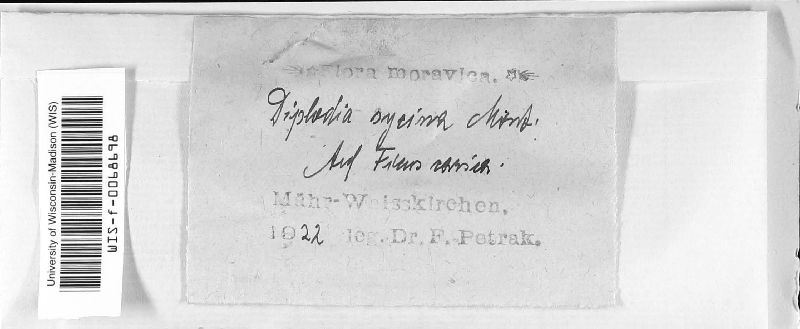 Flora moravica.
Diplodia sycina Mont.
Auf Ficus carica.
Mähr-Weisskirchen.
1922 leg. Dr. F. Petrak.
University of Wisconsin-Madison (WIS)
WIS-f-0068698